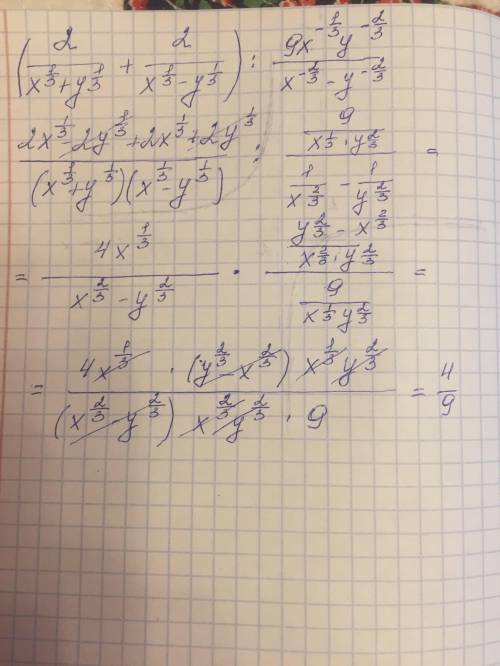 (2/(x^(1/3)+y^(1/3)) + 2/(x^(1/3)-y^(1/3))) : (9x^(-1/3)y^(-2/3))/(x^(-2/3)-y^(-2/3))
(2x^(1/3)-2y^(1/3)+2x^(1/3)+2y^(1/3))/((x^(1/3)+y^(1/3))(x^(1/3)-y^(1/3))) : (9/(x^(1/3)·y^(2/3)))/(1/x^(2/3) - 1/y^(2/3)) =
= 4x^(1/3)/(x^(2/3)-y^(2/3)) · ((y^(2/3)-x^(2/3))/(x^(2/3)·y^(2/3)))/(9/(x^(1/3)y^(2/3))) =
= (4x^(1/3)·(y^(2/3)-x^(2/3)) x^(1/3)y^(2/3))/((x^(2/3)-y^(2/3)) x^(2/3)y^(2/3)·9) = 4/9